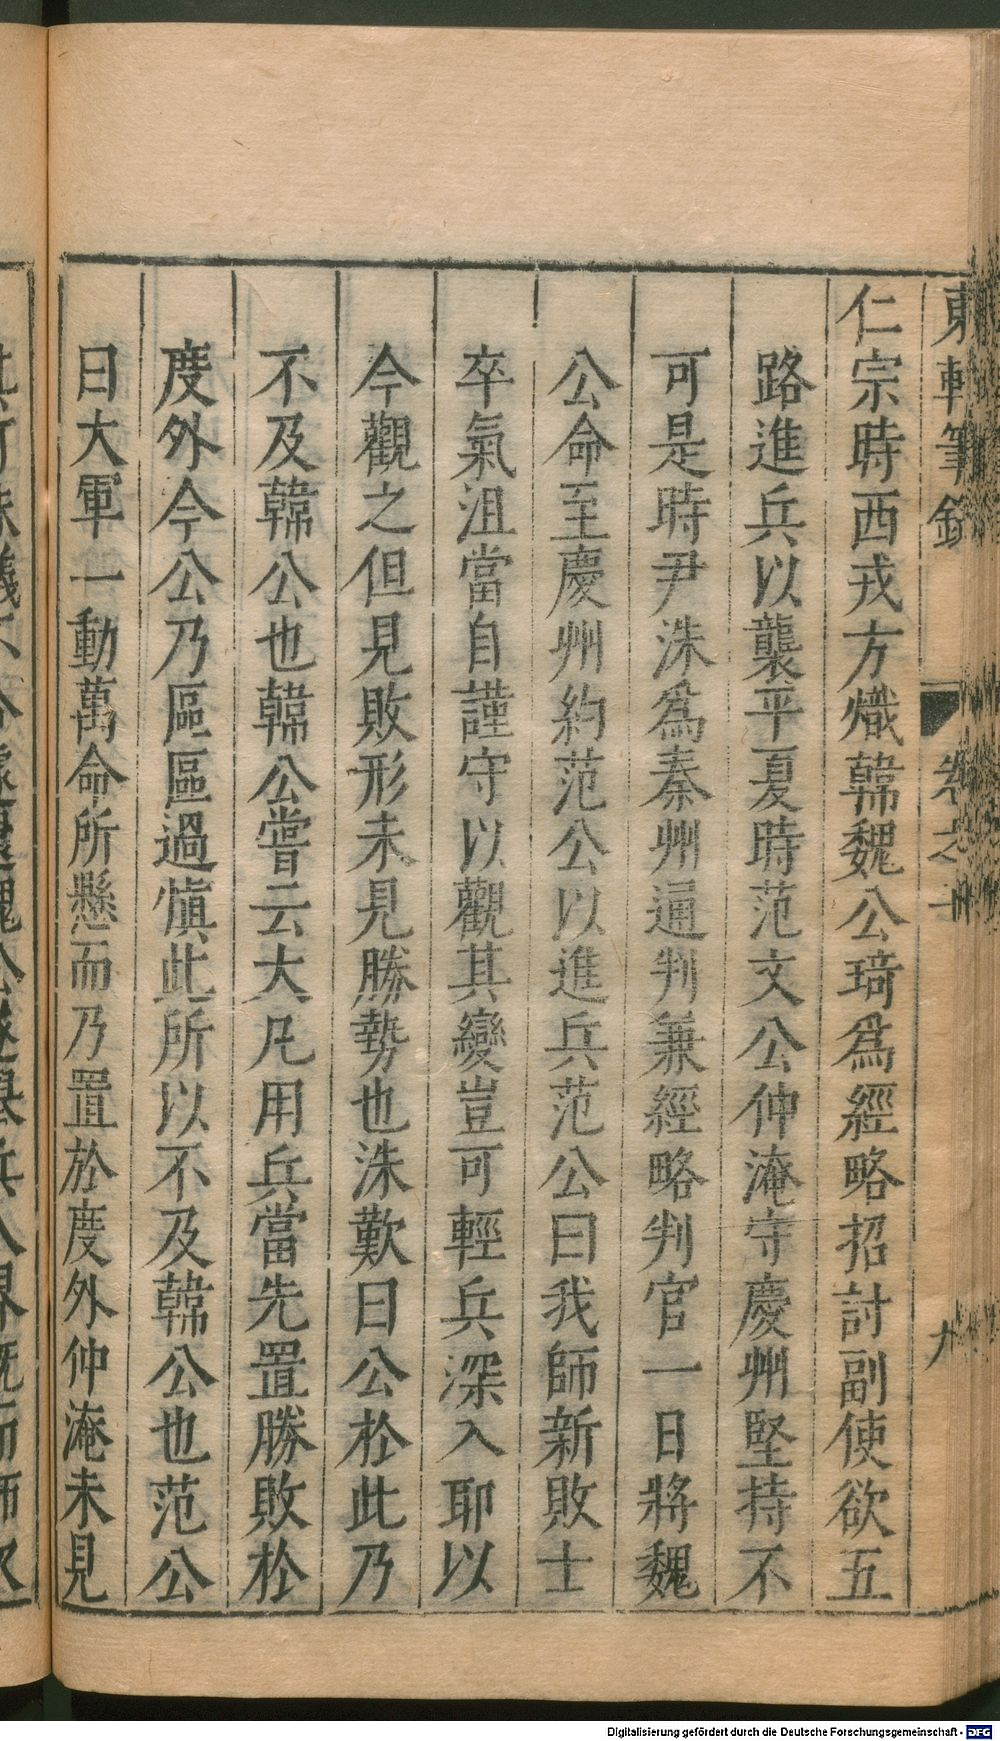 東軒筆錄 卷之 九
仁宗時西戎方熾韓魏公琦爲經略招討副使欲五
路進兵以襲平夏時范文公仲淹守慶州堅持不
可是時尹洙爲秦州通判兼經略判官一日將魏
公命至慶州約范公以進兵范公曰我師新敗士
卒氣沮當自謹守以觀其變豈可輕兵深入耶以
今觀之但見敗形未見勝勢也洙歎曰公於此乃
不及韓公也韓公嘗云大凡用兵當先置勝敗於
度外今公乃區區過慎此所以不及韓公也范公
曰大軍一動萬命所懸而乃置於度外仲淹未見
Digitalisierung gefördert durch die Deutsche Forschungsgemeinschaft - DFG